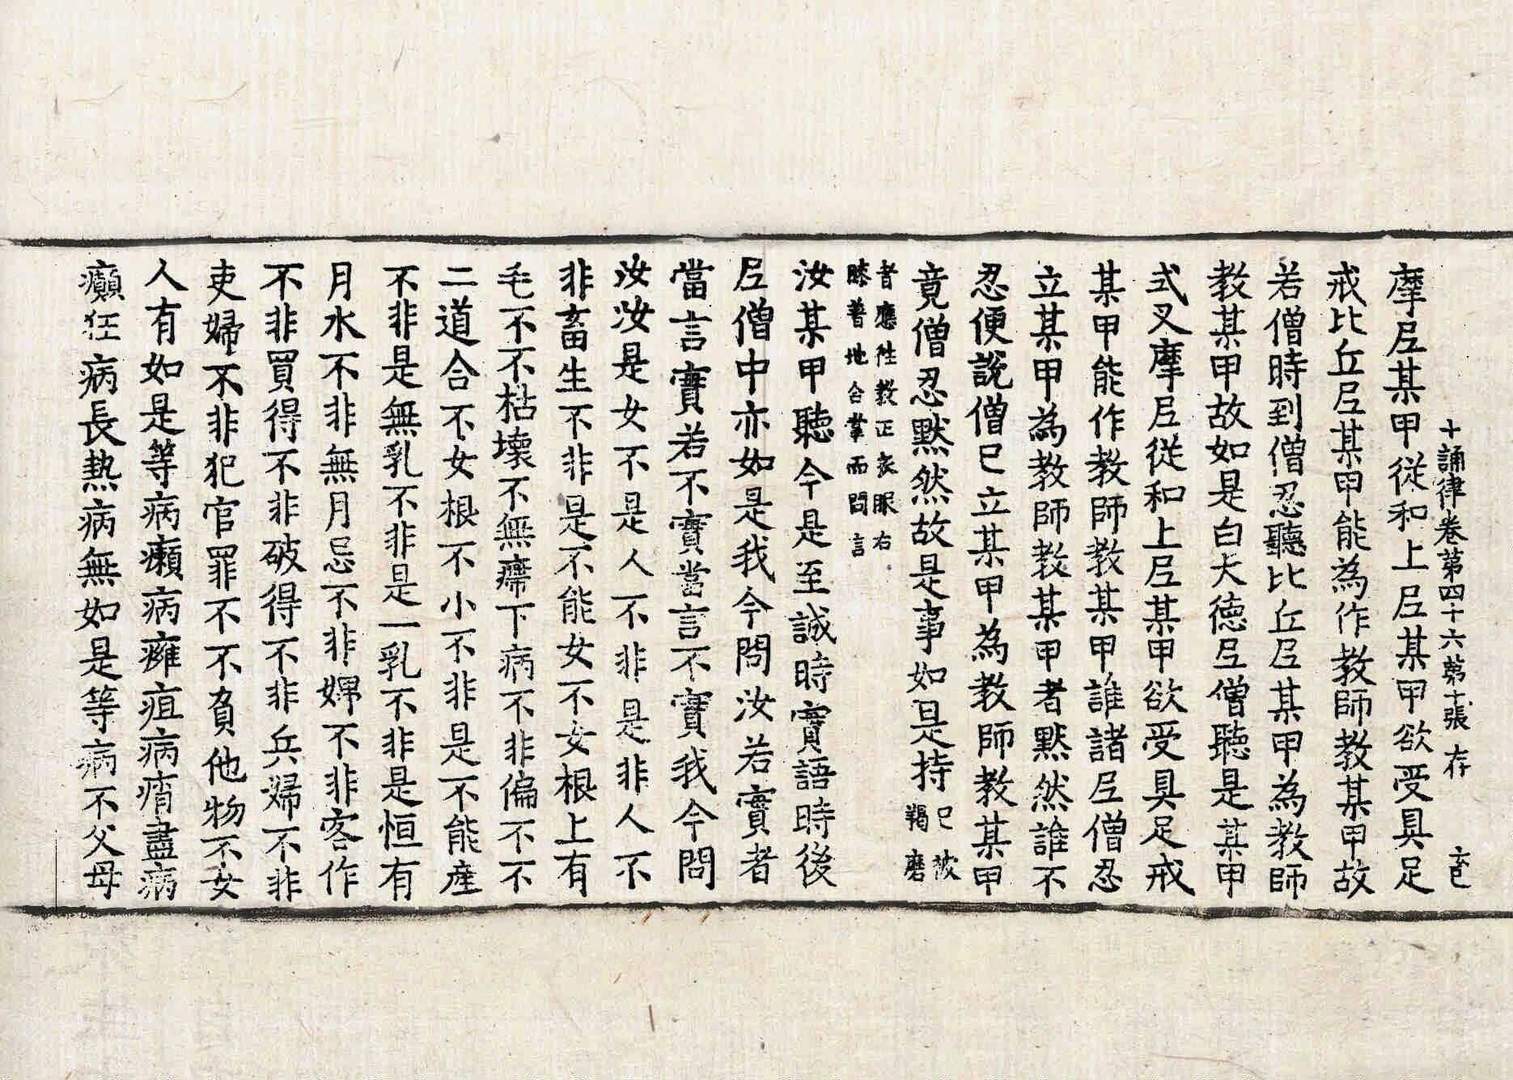 十誦律卷第四十六第十張 存
摩尼某甲從和上尼某甲欲受具足
戒比丘尼某甲能為作教師教某甲故
若僧時到僧忍聽比丘尼某甲為教師
教某甲故如是白大德尼僧聽是某甲
式叉摩尼從和上尼某甲欲受具足戒
某甲能作教師教某甲誰諸尼僧忍
立某甲為教師教某甲者默然誰不
忍便說僧已立某甲為教師教某甲
竟僧忍默然故是事如是持已被羯磨
者應徃教正衣服右
膝著地合掌而問言
汝某甲聽今是至誠時實語時後
尼僧中亦如是我今問汝若實者
當言實若不實當言不實我今問
汝汝是女不是人不非是非人不
非畜生不非是不能女不女根上有
毛不不枯壞不無癴下病不非偏不不
二道合不女根不小不非是不能產
不非是無乳不非是一乳不非是恒有
月水不非無月忌不非婢不非客作
不非買得不非破得不非兵婦不非
吏婦不非犯官罪不不負他物不女
人有如是等病癩病癰疽病痟盡病
癲狂病長熱病無如是等病不父母